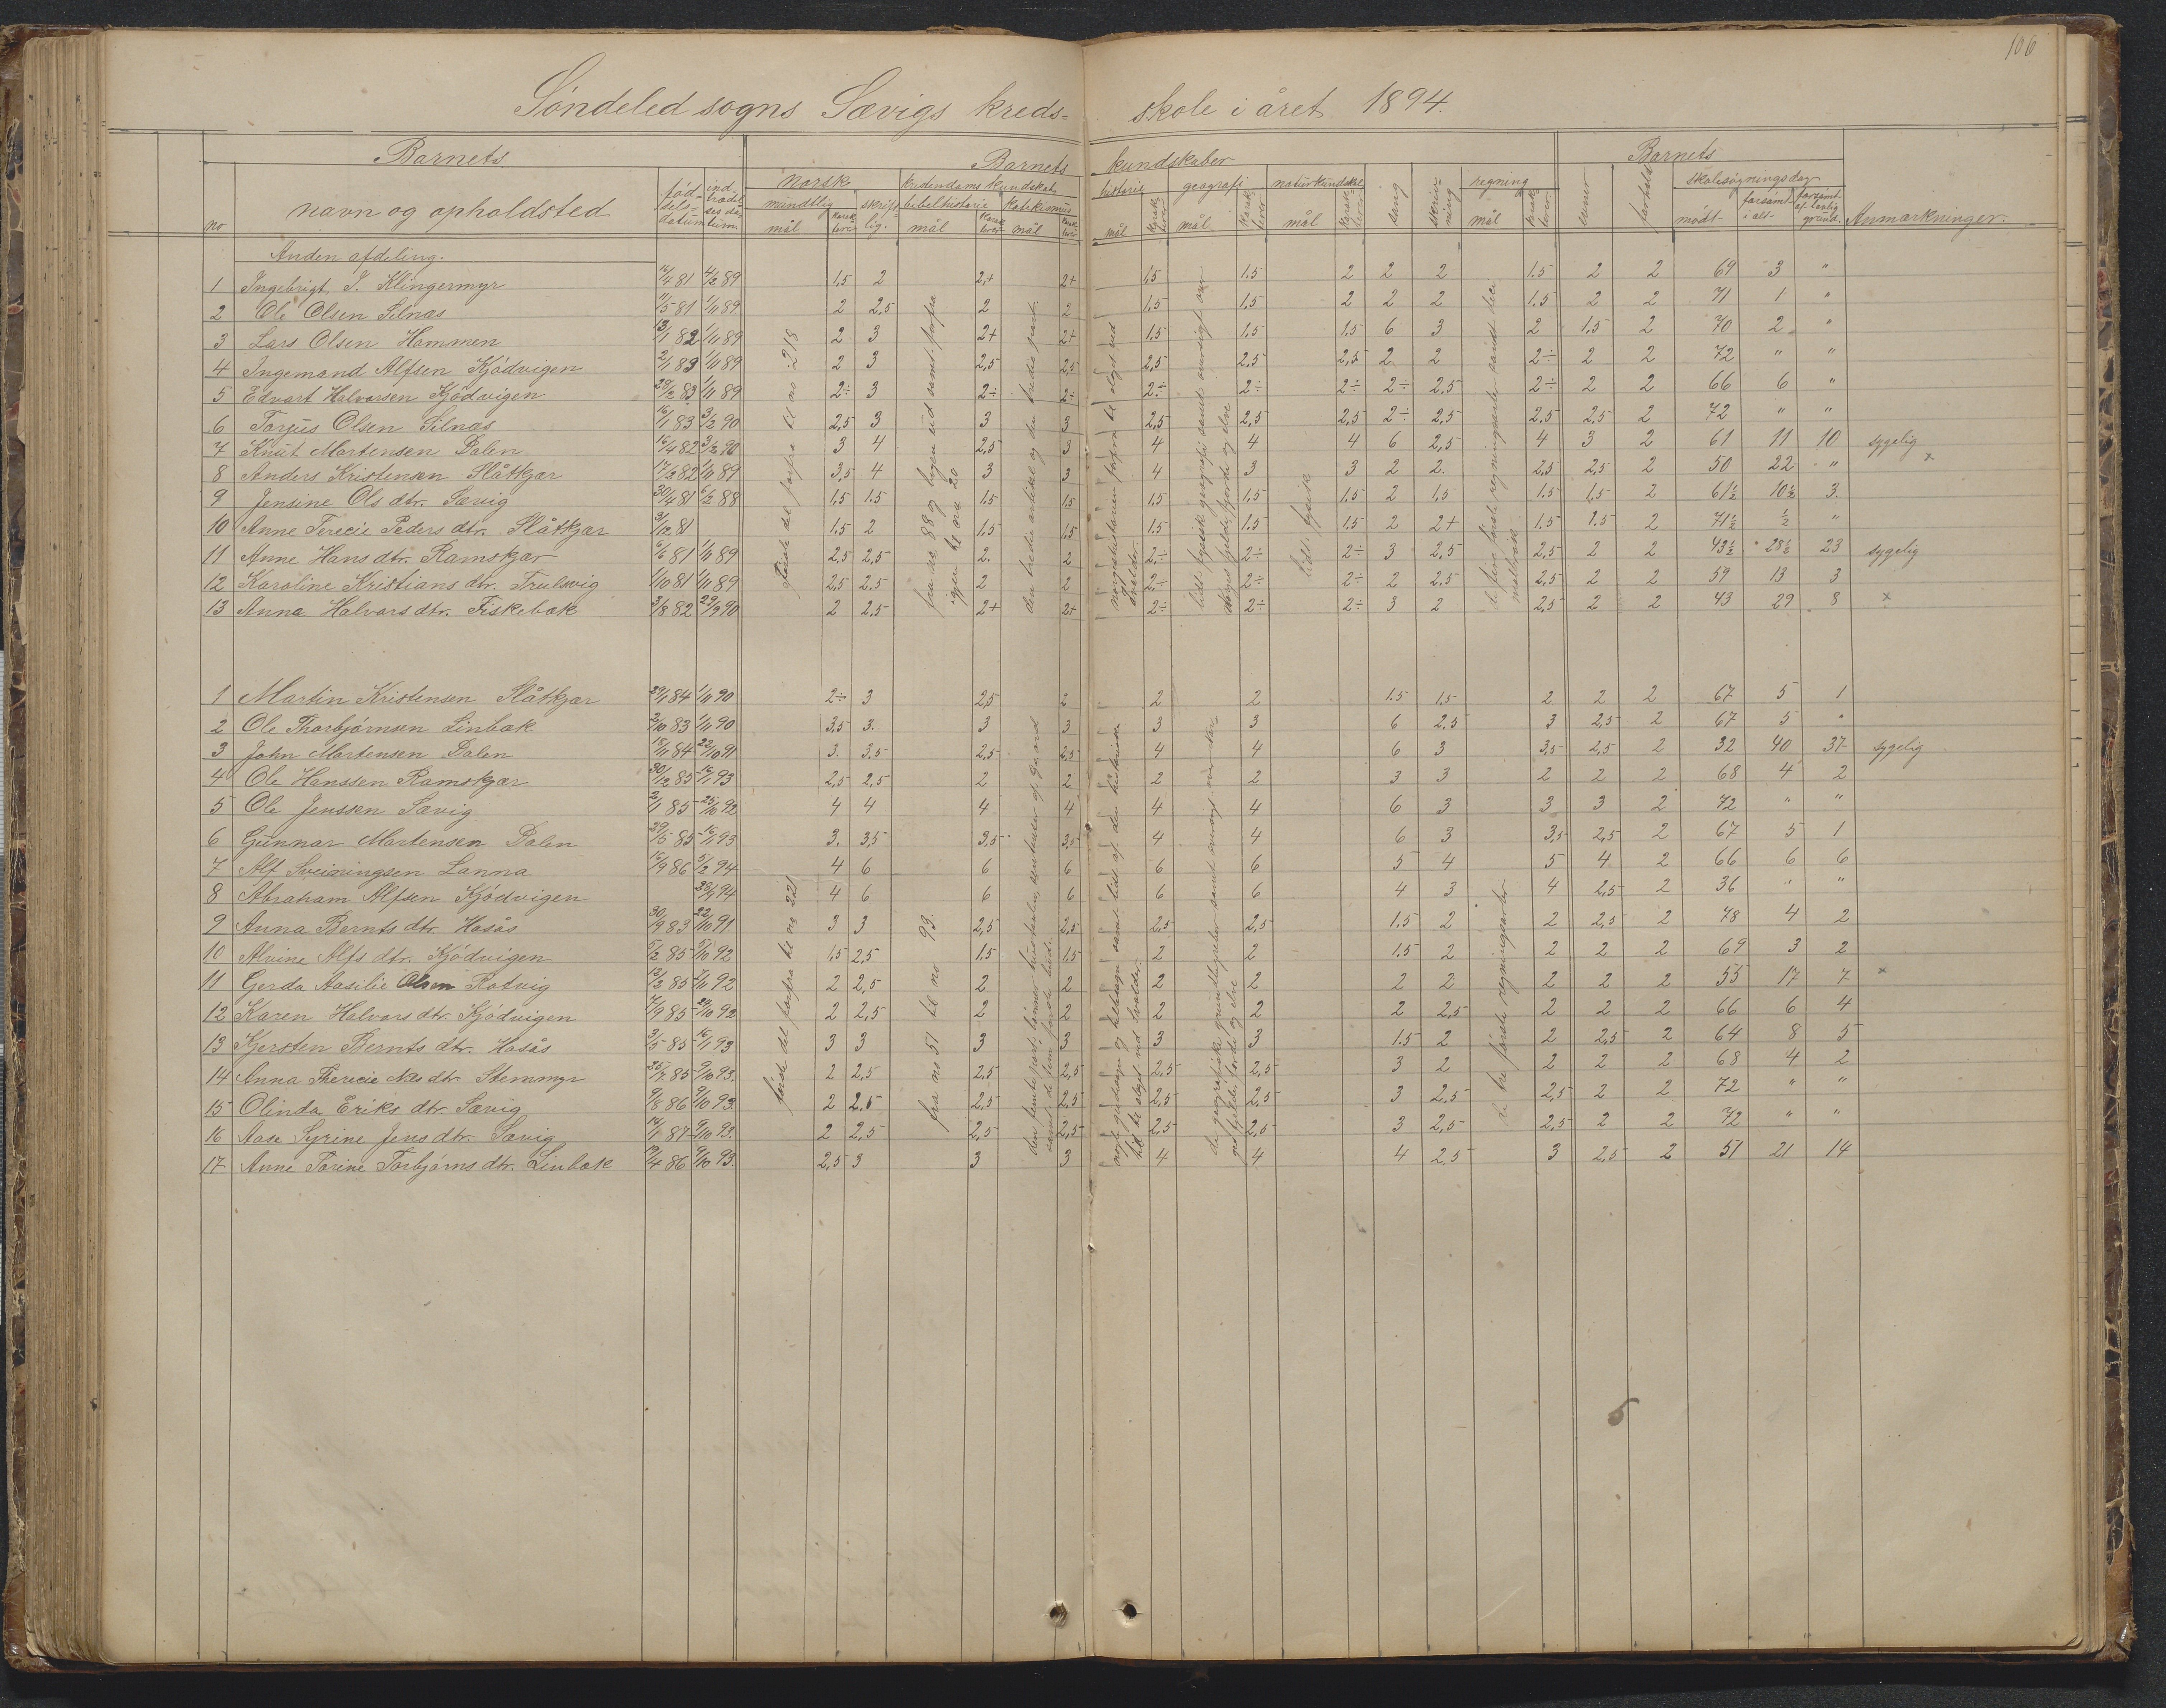 106
Söndeled sogns Sævigs kreds= skole i året 1894.
Barnets Barnets kundskaber Barnets
norsk kristendomskundskab historie geografi naturkundskab sang skriv-ning regning evner forhold skolesøgningsdage
no navn og opholdsted fød-sels-datum ind-trædel-ses da-tum. mündtlig skrift-lig. bibelhistorie katekismüs mødt forsømt i alt forsømt af lovlig grund. Anmærkninger.
mål karak-terer mål karak-terer mål karak-terer mål karak-terer mål karak-terer mål karak-terer mål karak-terer
Anden afdeling.
1 Ingebrigt J. Klingermyr 16/4 81 4/2 89 1,5 2 2+ 2+ 1,5 1,5 2 2 2 1.5 2 2 69 3 "
2 Ole Olsen Silnæs 11/5 81 1/11 89 2 2,5 2 2 1,5 1,5 2 2 2 1,5 2 2 71 1 "
3 Lars Olsen Hammen 13/1 82 1/11 89 2 3 2+ 2+ 1,5 1,5 1,5 6 3 2 1,5 2 70 2 "
4 Ingemand Alfsen Kjödvigen 2/1 83 1/11 89 2 3 2,5 2,5 2,5 2,5 2,5 2 2 2÷ 2 2 72 " "
5 Edvart Halvorsen Kjödvigen 28/2 83 1/11 89 2÷ 3 2÷ 2÷ 2÷ 2÷ 2÷ 2÷ 2,5 2÷ 2 2 66 6 "
6 Torjüs Olsen Silnæs 16/1 83 3/2 90 2,5 3 3 3 2,5 2,5 2,5 2÷ 2,5 2,5 2,5 2 72 " "
7 Knüt Mortensen Dalen 16/4 82 3/2 90 3 4 2,5 3 4 4 4 6 2,5 4 3 2 61 11 10 sygelig
8 Anders Kristensen Slåtkjær 17/2 82 1/11 89 3,5 4 3 3 4 3 3 2 2. 2,5 2,5 2 50 22 " x
9 Jensine Ols dtr. Sævig 30/4 81 6/2 88 1,5 1.5 1.5 1.5 1,5 1,5 1.5 2 1,5 1.5 1,5 2 61½ 10½ 3.
10 Anne Terecie Peders dtr. Slåtkjær 3/12 81 1.5 2 1.5 1.5 1.5 1.5 1.5 2 2+ 1.5 1.5 2 71½ ½ "
11 Anne Hans dtr. Ramskjær 6/6 81 1/11 89 2,5 2,5 2. 2 2÷ 2÷ 2÷ 3 2,5 2,5 2 2 43½ 28½ 23 sygelig
12 Karoline Kristians dtr. Trulsvig 1/10 81 1/11 89 2,5 2,5 2 2 2÷ 2÷ 2÷ 2 2.5 2,5 2 2 59 13 3
13 Anna Halvors dtr. Fiskebæk 3/8 82 29/9 90 2 2,5 2+ 2+ 2÷ 2÷ 2÷ 3 2 2,5 2 2 43 29 8 x
förste del forfra til no 218
fra no 88 og bogen ud samt forfra igjen til no 20
den tredie artikel og den tredie part.
norgeshistorien forfra til slaget ved
lidt fysisk geografi samt oversigt over
lidt fysik
de fire første regningsarter samt deci-malbrøk
1 Martin Kristensen Slåtkjær 29/1 84 1/11 90 2÷ 3 2,5 2 2 2 1.5 1,5 2 2 2 67 5 1
2 Ole Thorbjörnsen Linbæk 2/10 83 1/11 90 3,5 3. 3 3 3 3 6 2,5 3 2,5 2 67 5 "
3 John Mortensen Dalen 18/11 84 22/10 91 3. 3.5 2,5 2,5 4 4 6 3 3,5 2,5 2 32 40 37 sygelig
4 Ole Hanssen Ramskjær 30/12 85 16/1 93 2,5 2,5 2 2 2 2 3 3 2 2 2 68 4 2
5 Ole Jenssen Sævig 2/1 85 25/10 92 4 4 4 4 4 4 6 3 3 3 2 72 " "
6 Günnar Mortensen Dalen 29/5 85 16/1 93 3. 3,5 3,5 3,5 4 4 6 3 3,5 2,5 2 67 5 1
7 Alf Sveiningsen Lanna 16/9 86 5/2 94 4 6 6 6 6 6 5 4 5 4 2 66 6 6
8 Abraham Alfsen Kjödvigen 23/4 94 4 6 6 6 6 6 4 3 4 2,5 2 36 " "
9 Anna Bernts dtr. Hasås 30/9 83 22/10 91 3 3 2,5 2.5 2.5 2,5 1.5 2 2 2,5 2 78 4 2
10 Alvine Alfs dtr. Kjödvigen 5/2 85 9/10 92 1,5 2,5 1.5 1.5 2 2 1.5 2 2 2 2 69 3 2
11 Gerda Aasilie Olsen Rotvig 13/2 85 7/11 92 2 2,5 2 2 2 2 2 2 2 2 2 55 17 7 x
12 Karen Halvors dtr. Kjödvigen 7/9 85 24/10 92 2 2,5 2 2 2 2 2 2,5 2 2 2 66 6 4
13 Kjersten Bernts dtr. Hasås 3/5 85 16/1 93 3 3 3 3 3 3 1.5 2 2 2,5 2 64 8 5
14 Anna Therecie Nils dtr. Stemmyr 25/7 85 9/10 93. 2 2,5 2.5 2,5 2,5 2,5 3 2 2 2 2 68 4 2
15 Olinda Eriks dtr. Sævig 9/8 86 9/10 93. 2 2,5 2,5 2,5 2,5 2,5 3 2,5 2,5 2 2 72 " "
16 Aase Syrine Jens dtr. Sævig 14/1 87 9/10 93. 2 2,5 2,5 2,5 2,5 2,5 3 2,5 2,5 2 2 72 " "
17 Anne Torine Torbjörns dtr. Linbæk 19/4 86 9/10 93. 2,5 3 3 3 4 4 4 2,5 3 2,5 2 51 21 14
förste del forfra til no 221
fra no 51 til no 93.
de tre förste regningsarter
5